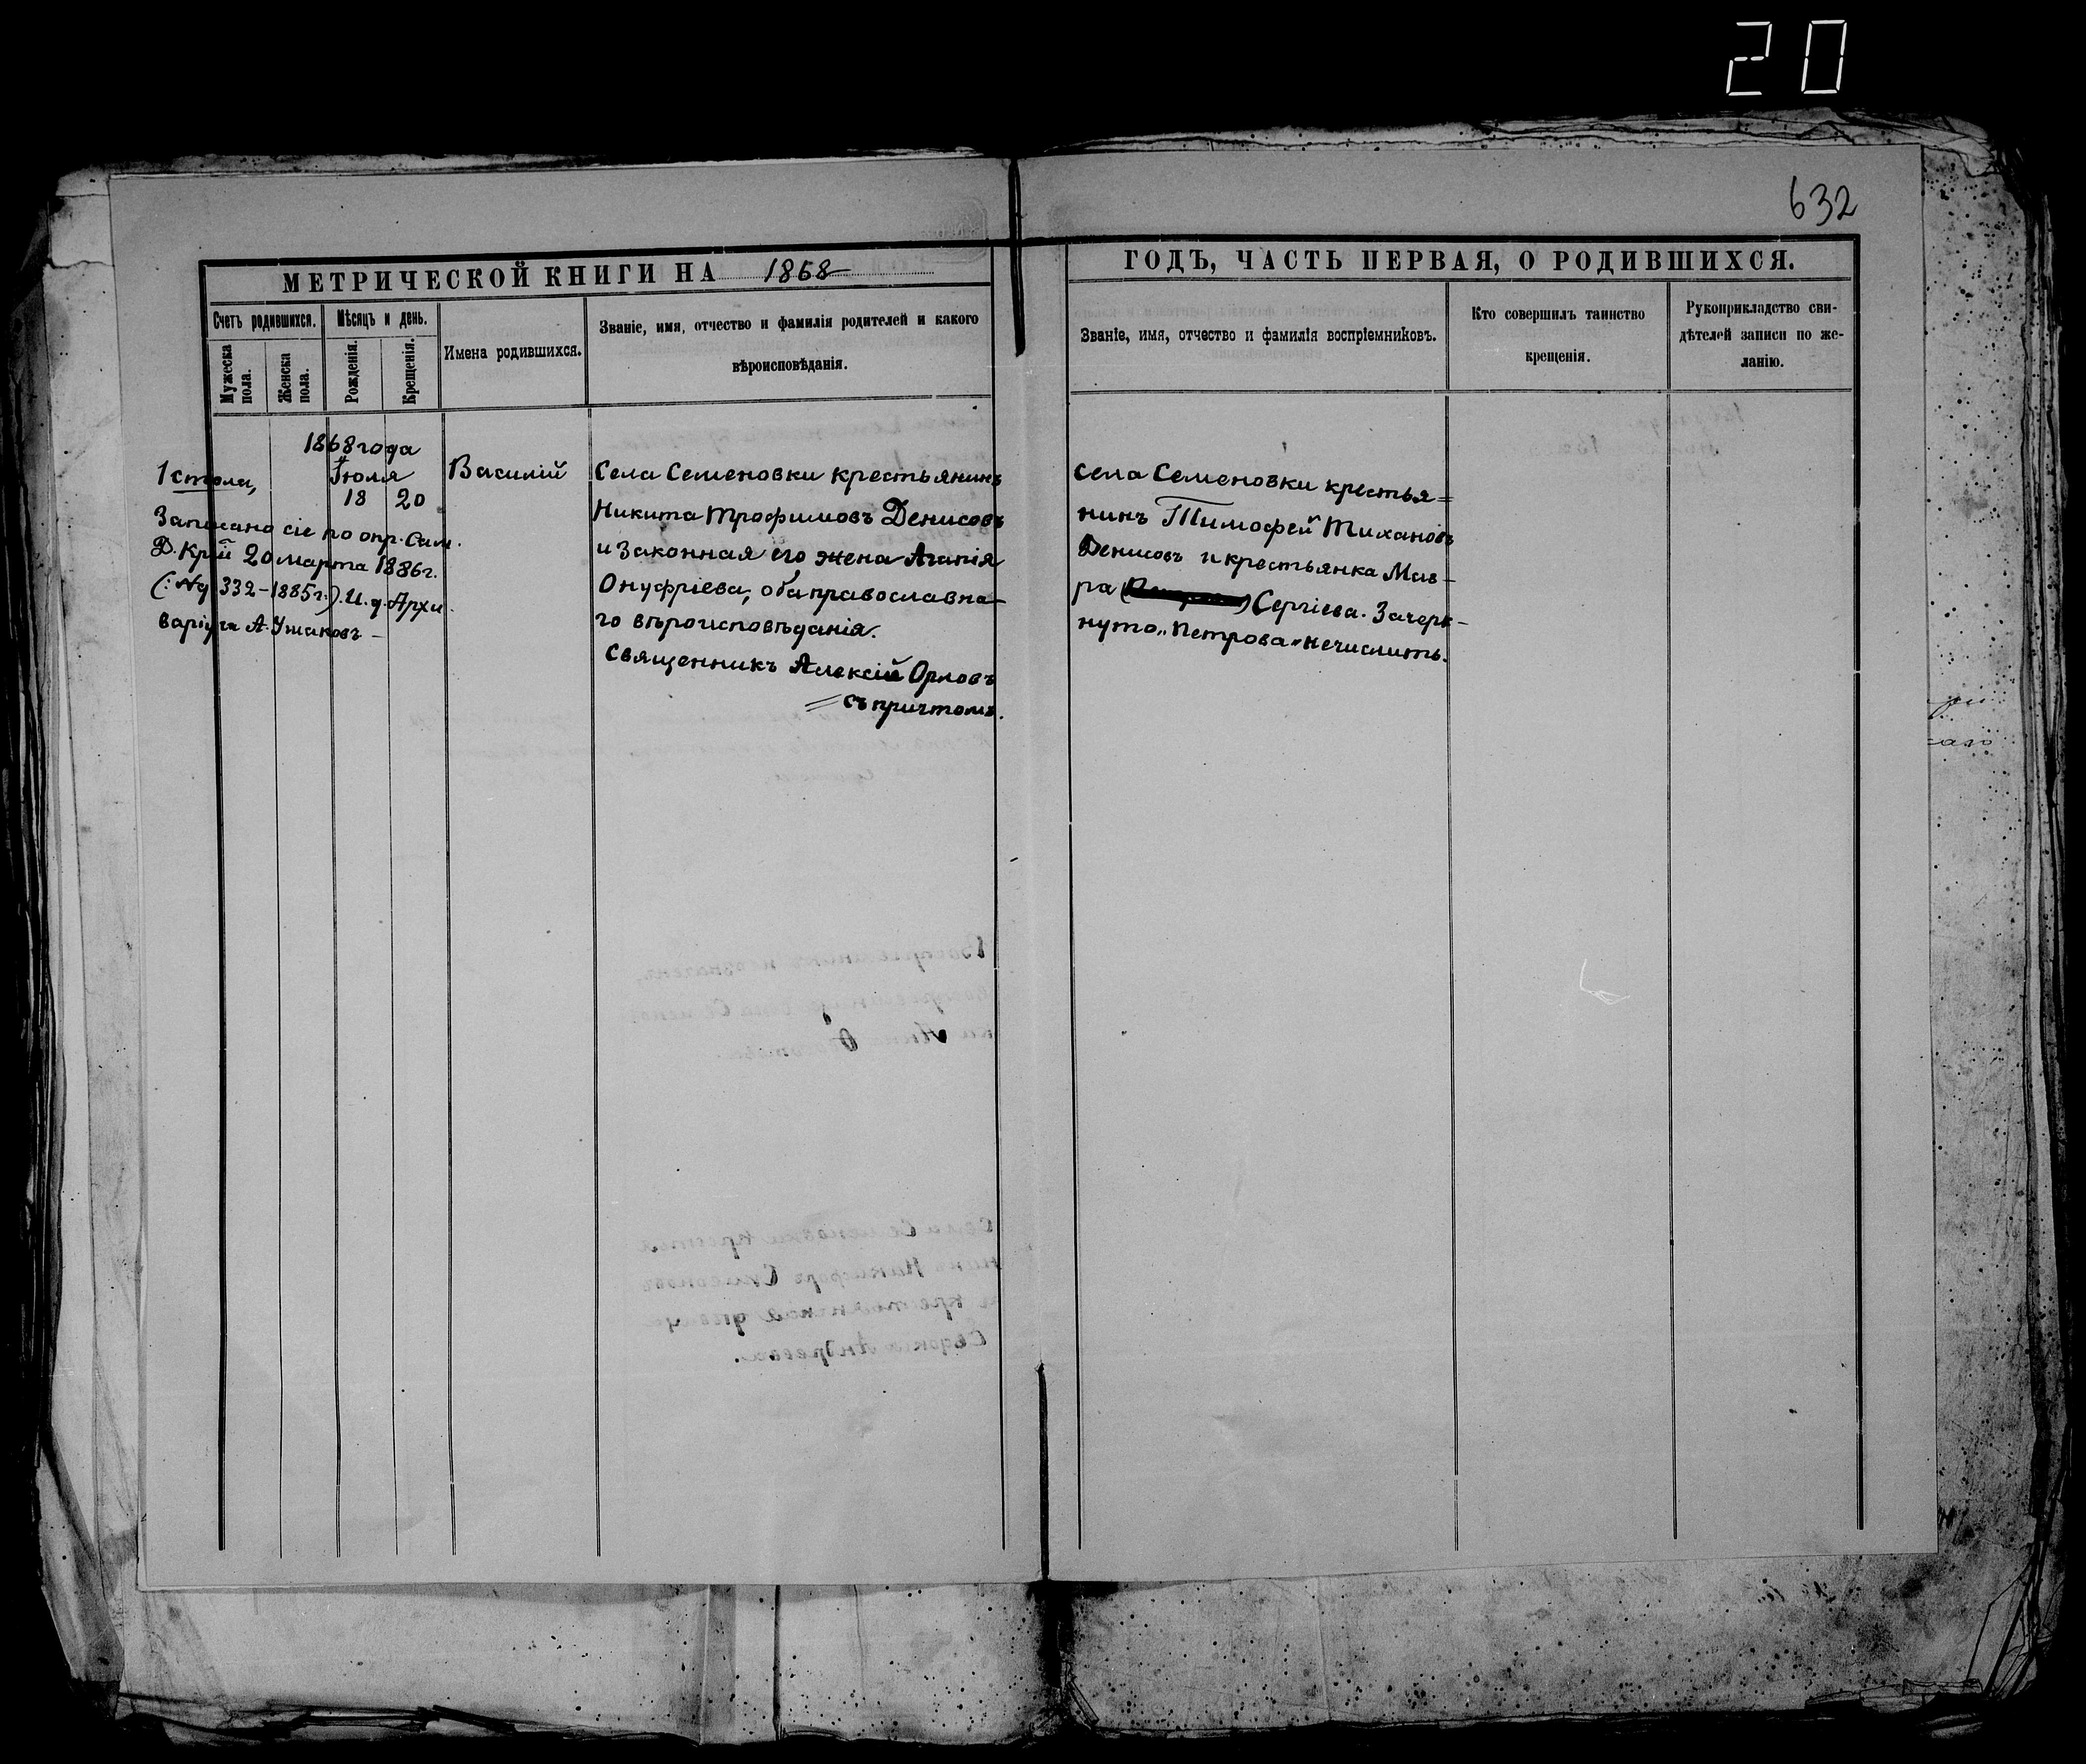 20
632
МЕТРИЧЕСКОЙ КНИГИ НА 1868
ГОДЪ, ЧАСТЬ ПЕРВАЯ, О РОДИВШИХСЯ.
Счетъ родившихся.
Мужеска пола.
Женска пола.
Мѣсяцъ и день.
Рожденія.
Крещенія.
Имена родившихся.
Званіе, имя, отчество и фамилія родителей и какого
вѣроисповѣданія.
Званіе, имя, отчество и фамилія воспріемниковъ.
Кто совершилъ таинство
крещенія.
Рукоприкладство сви-
дѣтелей записи по же-
ланію.
1868 года
Іюля
18 20
1 стола,
Записано сіе по опр. Сам.
Д. Кріи 20 марта 1886 г.
(: № 332-1885 г.:) И. д. Архи
варіуса А. Ушаковъ
Василій
Села Семеновки крестьянинъ
Никита Трофимовъ Денисовъ
и законная его жена Агапія
Онуфріева, оба православна-
го вѣроисповѣданія.
Священникъ Алексій Орловъ
съ причтомъ.
села Семеновки крестья=
нинъ Тимофей Тихановъ
Денисовъ и крестьянка Мав-
ра Сергіева. Зачерк-
нуто „Петрова" нечислить.